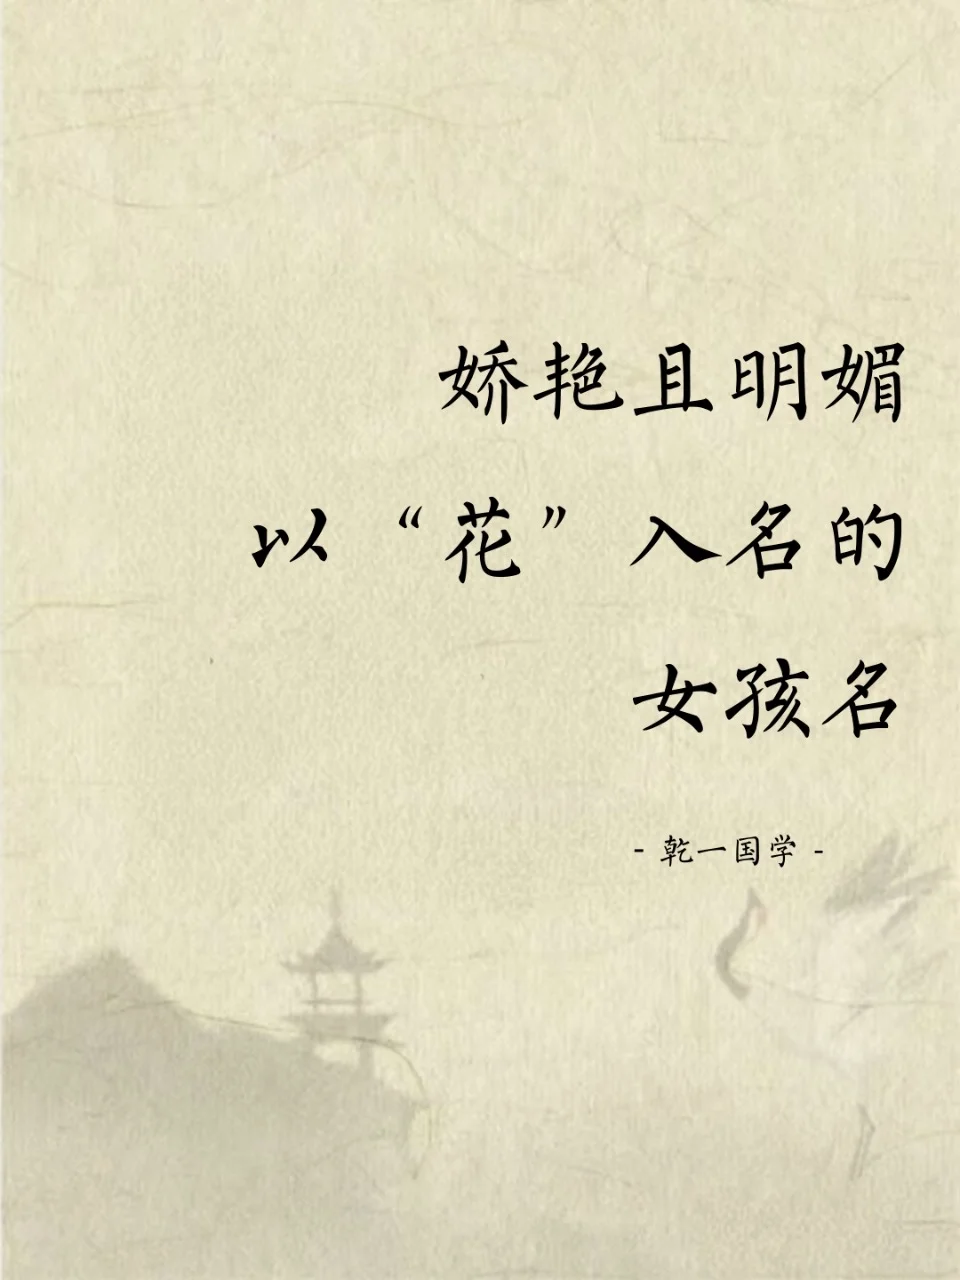 娇艳且明媚
以“花”入名的
女孩名
- 乾一国学 -